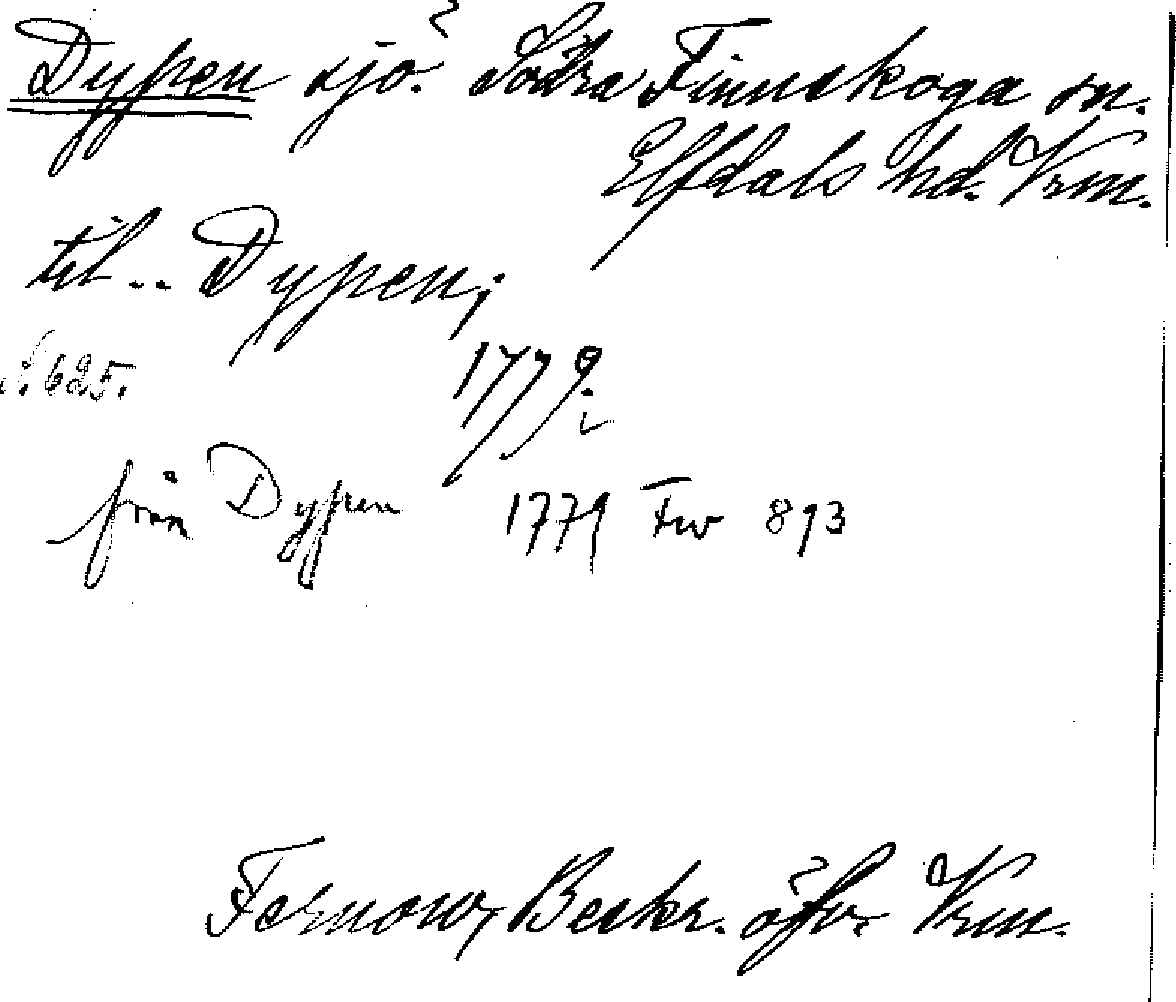 Dypen sjö. Södra Finnskoga sn.
Elfdals hd. Vrm.
till.. Dypen;
S. 625. 1779.
från Dypen 1779 Fw 893
Fernow, Beskr. öfv. Vrm.